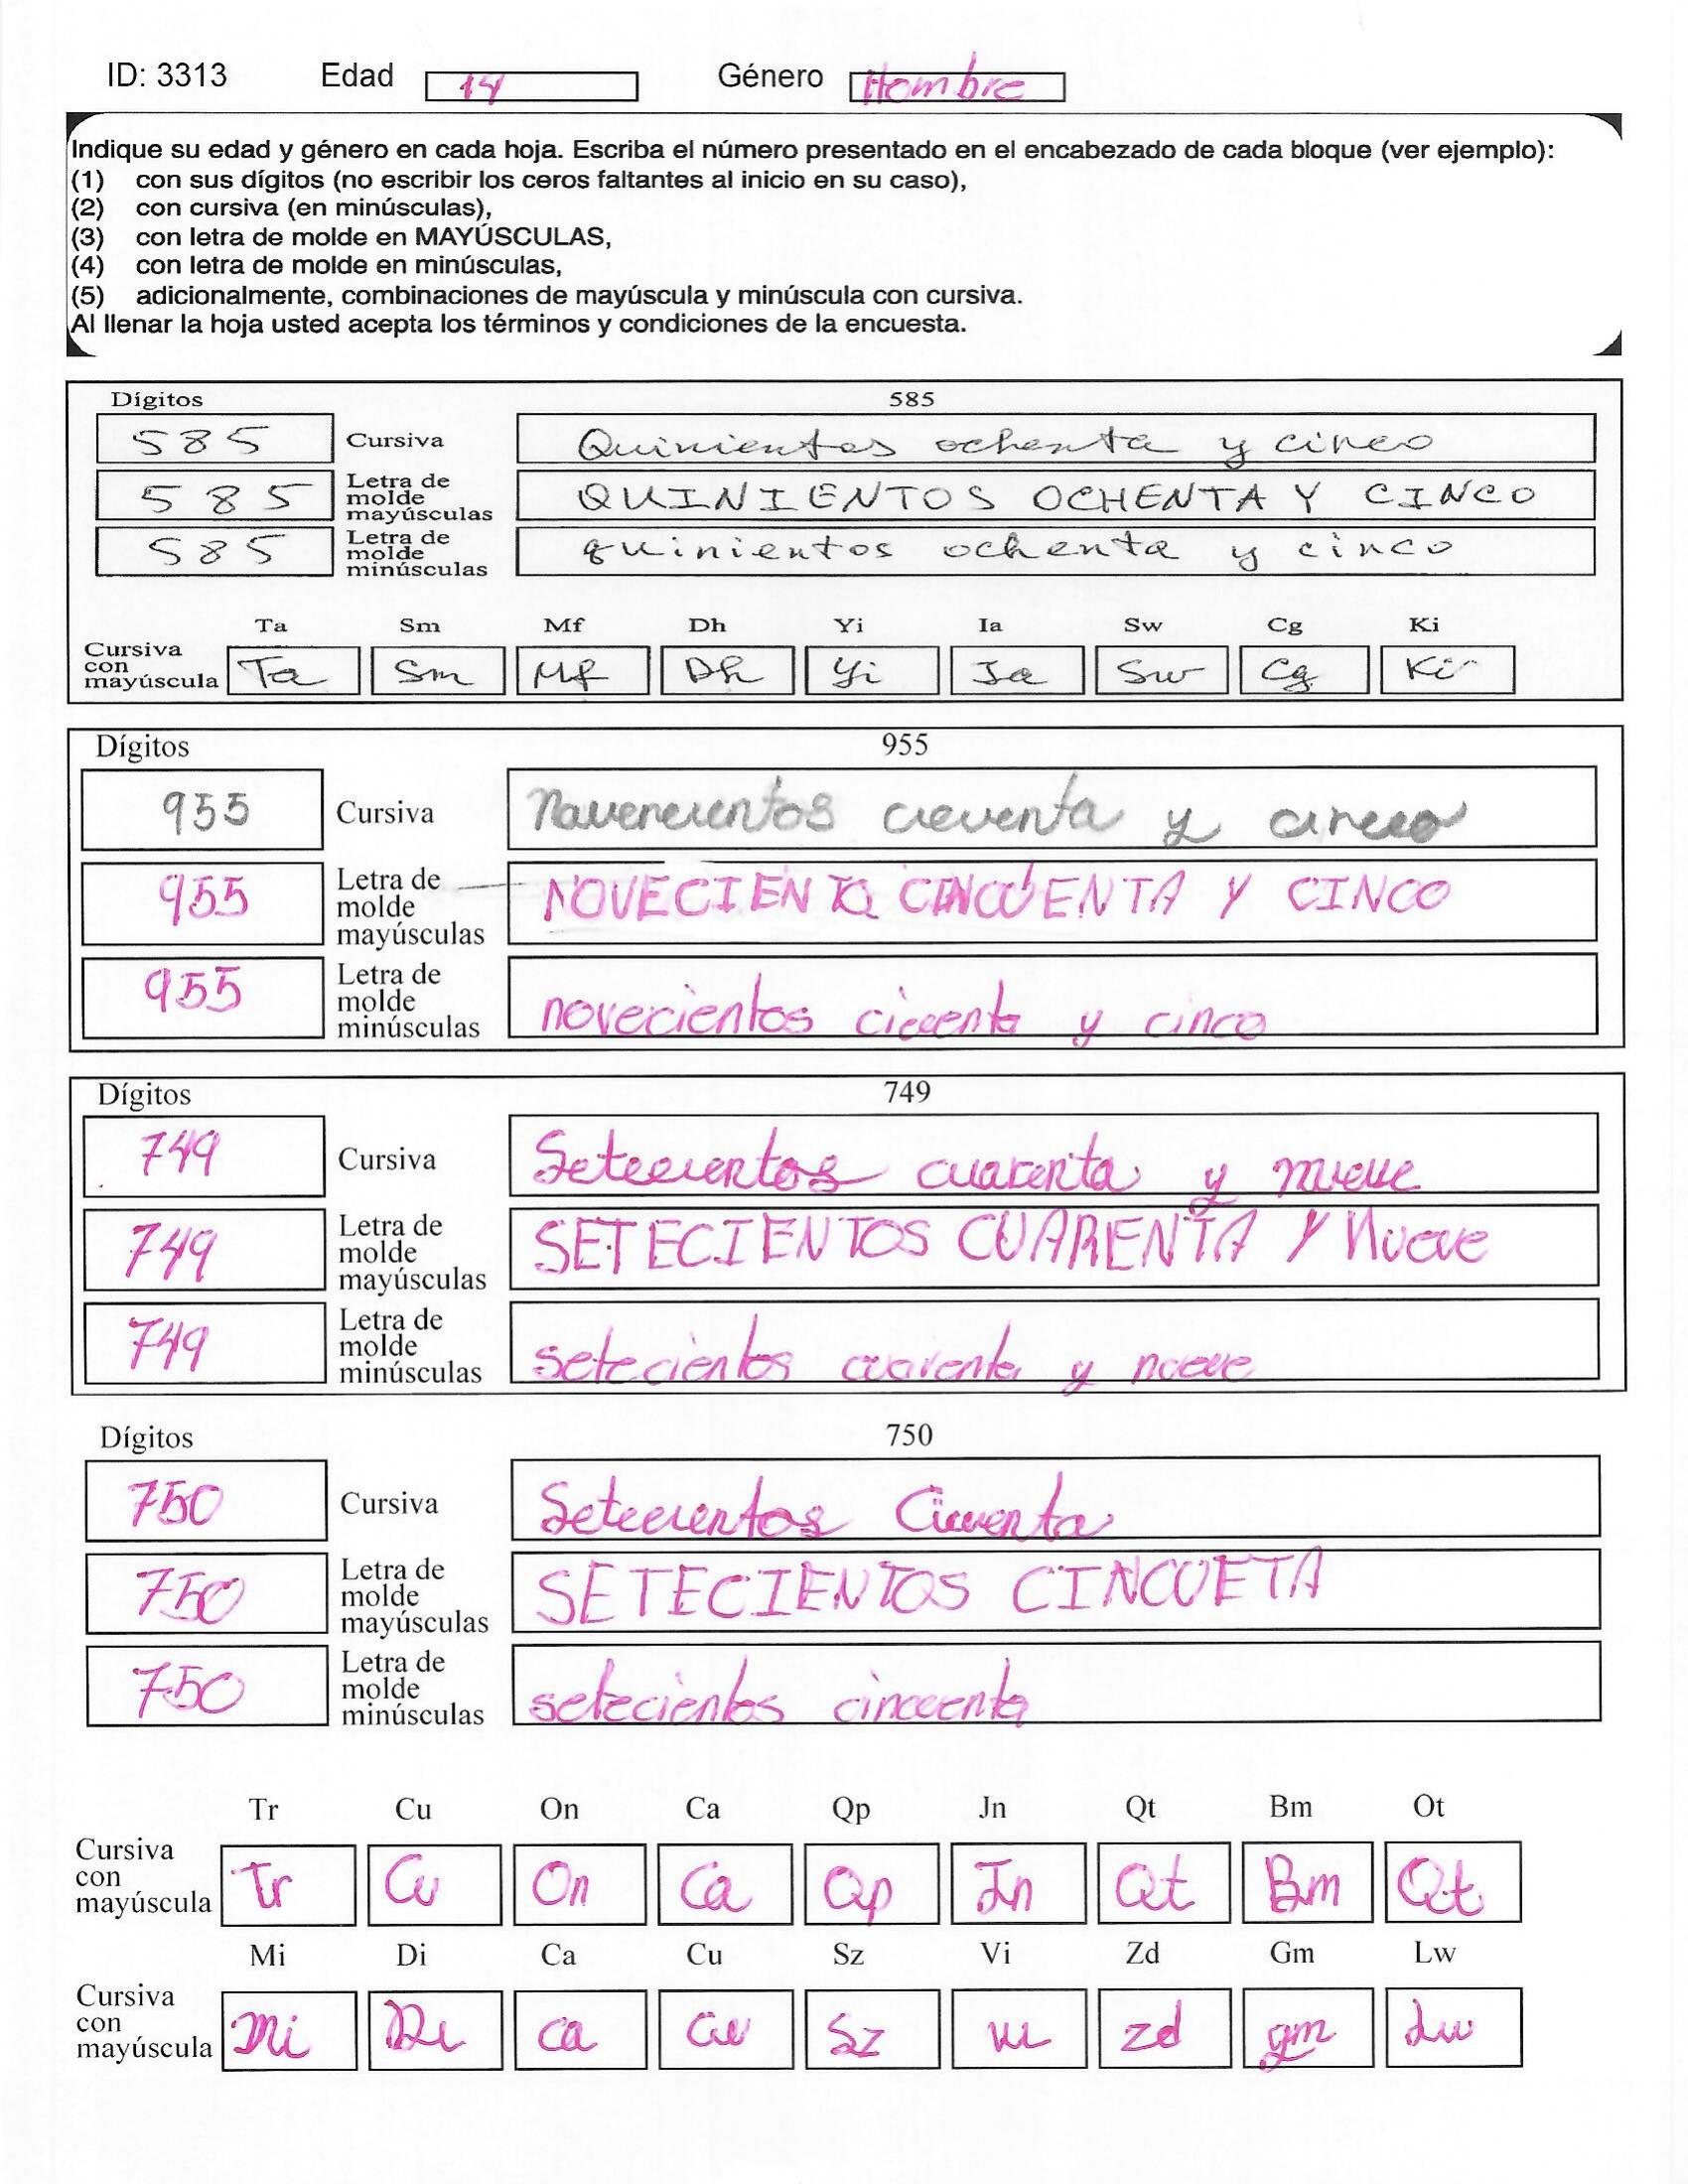 ID: 3313 Edad 14 Género Hombre
Indique su edad y género en cada hoja. Escriba el número presentado en el encabezado de cada bloque (ver ejemplo):
(1) con sus dígitos (no escribir los ceros faltantes al inicio en su caso),
(2) con cursiva (en minúsculas),
(3) con letra de molde en MAYÚSCULAS,
(4) con letra de molde en minúsculas,
(5) adicionalmente, combinaciones de mayúscula y minúscula con cursiva.
Al llenar la hoja usted acepta los términos y condiciones de la encuesta.
Dígitos 585
585 Cursiva Quinientos ochenta y cinco
585 Letra de molde mayúsculas QUINIENTOS OCHENTA Y CINCO
585 Letra de molde minúsculas quinientos ochenta y cinco
Ta Sm Mf Dh Yi Ia Sw Cg Ki
Cursiva con mayúscula Ta Sm Mf Dh Yi Ia Sw Cg Ki
Dígitos 955
955 Cursiva y
955 Letra de molde mayúsculas CINCUENTA Y CINCO
955 Letra de molde minúsculas novecientos y cinco
Dígitos 749
749 Cursiva Setecientos cuarenta y nueve
749 Letra de molde mayúsculas SETECIENTOS CUARENTA Y Nueve
749 Letra de molde minúsculas setecientos cuarenta y nueve
Dígitos 750
750 Cursiva Setecientos
750 Letra de molde mayúsculas SETECIENTOS CINCUETA
750 Letra de molde minúsculas setecientos cincuenta
Tr Cu On Ca Qp Jn Qt Bm Ot
Cursiva con mayúscula Tr Cu On Ca Qp Jn Qt Bm Qt
Mi Di Ca Cu Sz Vi Zd Gm Lw
Cursiva con mayúscula Mi Di ca Cu Sz vi zd gm Lw